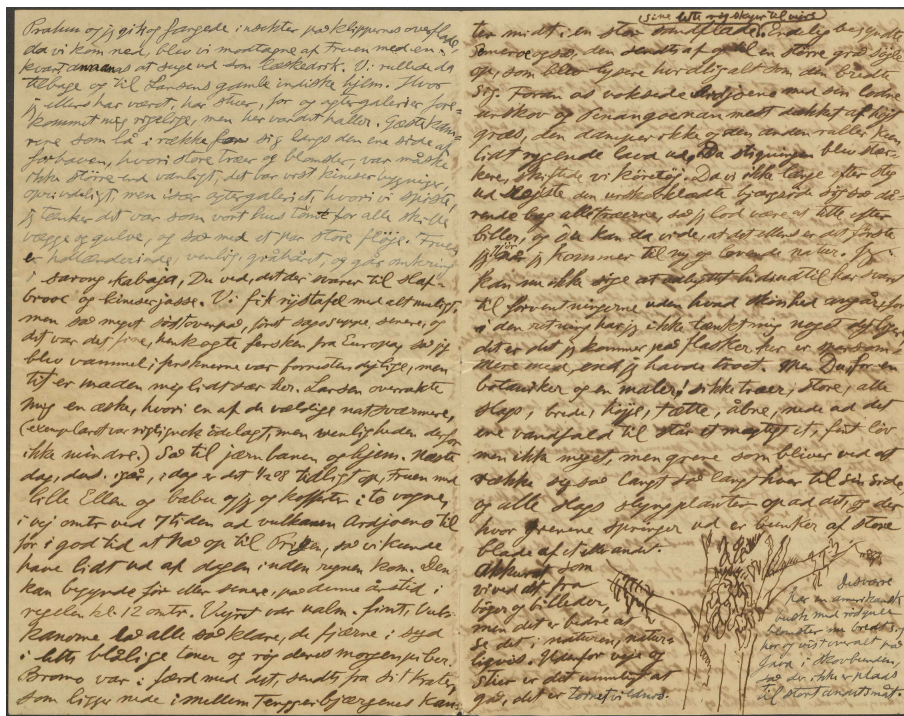 Prahun og jeg gik og fangede insekter paa klippernes overflade
da vi kom ned, blev vi modtagne af fruen med en
kvart ananas at suge ud som læskedrik. Vi rullede da
tilbage og til Larsens gamle indiske hjem. Hvor
jeg ellers har været, har stuer, for og agtergalerier fore-
kommet mig rigelige, men her var det haller. Gæstekam-
rene som lå i række for sig langs den ene side af
forhaven, hvori store træer og blomster, var måske
ikke större end vanligt, det var vist kineserbygninger,
oprindeligt, men især agtergaleriet, hvori vi spiste,
jeg tænker det var som vort hus tomt for alle skille
vægge og gulve, og så med et par store flöje. Fruen
er hollænderinde, venlig, gråhåret, og går omkring
i sarong kabaja, Du ved, det der svarer til slaf-
brook og kineserjasse. Vi fik rijstafel med alt muligt,
men så meget södt ovenpå, först sagosuppe, senere, og
det var det fine, henkogte fersken fra Europa, så jeg
blev vammel; perskenerne var forresten dejlige, men
tit er maden mig lidt svær her. Larsen overrakte
mig en æske, hvori en af de vældige natsværmere,
(exemplaret var rigtignok ödelagt, men venligheden derfor
ikke mindre.) Så til jærnbanen og hjem. Næste
dag, dvs. igår, idag er det 4/08 tidligt op, fruen med
lille Ellen og babu og jeg og kofferter i to vogne,
i vej omtr ved 7 tiden ad vulkanen Ardjoeno til
for i god tid at nå op til Trijen, så vi kunde
have lidt ud af dagen inden regnen kom. Den
kan begynde för eller senere, på denne årstid i
regelen kl. 12 omtr. Vejret var varm-fint, vul-
kanerne lå alle så klare, de fjærne i syd
i lette blålige toner og røg deres morgenpiber.
Bromo var i færd med det, sendte fra sit krater,
som ligger nede i mellem Tenggerbjærgenes kam-
sine lette røgskyer til vejrs
ter midt i en stor sandflade. Endelig begyndte
Smeroe også, den sendte af og til en större grå söjle
op, som blev lysere hurtigt alt som den bredte
sig. Foran os voksede Ardjoeno med sin lodne
urskov og Penanggoenan mest dækket af højt
græs, den danner ikke og den anden ruller kun
lidt rygende lava ud. Da stigningen blev stær-
kere, skiftede vi köretöj. Da vi ikke længe efter steg
ud skjulte den urskovklædte bjærgside sig så då-
rende bag alle træerne, så jeg lod være at lede efter
biller, og Öli kan da vide, at det ellers er det förste
jeg gör når jeg kommer til ny og lovende natur. Jeg
kan nu ikke sige at udbyttet hidindtil har svaret
til forventningerne uden hvad skönhed angår, for
i den retning har jeg ikke tænkt mig noget dejligere,
det er det jeg kommer på flasker her er mer som
mere med, end jeg havde troet. Men Du, for en
botaniker og en maler, sikke træer, store, alle
slags, brede, höje, tætte, åbne, nede ad det
ene vandfald til står et mægtigt et, fint löv
men ikke meget, men grene som bliver ved at
række sig så langt så langt hver til sin side,
og alle slags slyngplanter op ad det, og der
hvor grenene springer ud er bunker af store
blade af et ell andet.
Akkurat som
vi ved det fra
böger og billeder,
men det er bedre at
se det i naturen, natur-
ligvis. Udenfor veje og
stier er det umuligt at
gå, det er tornet vildnis.
Desværre
har en amerikansk
busk med rödgule
blomster nu bredt sig
her og vist overalt på
Java i skovbunden,
så der ikke er plads
til stort andetsmåt.